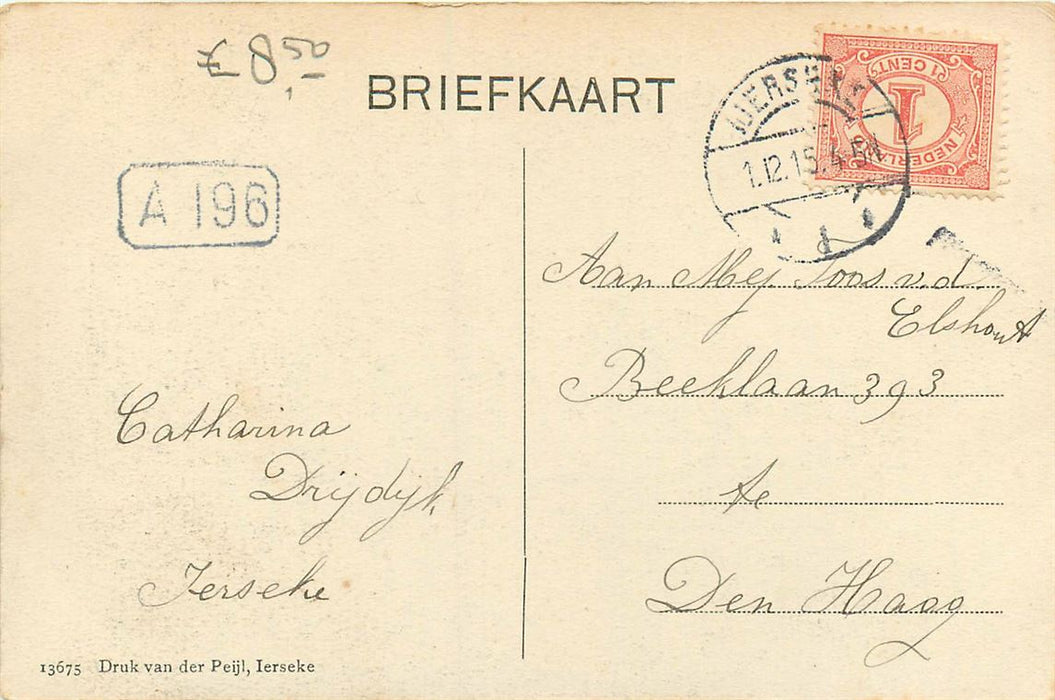 8,50
BRIEFKAART
IERSEKE
1.12.15.4-5N
1 CENT
1
NEDERLAND
A 196
Aan Mej. Toos v.d.
Elshout
Beeklaan 393
te
Den Haag
Catharina
Drijdijk
Ierseke
13675 Druk van der Peijl, Ierseke